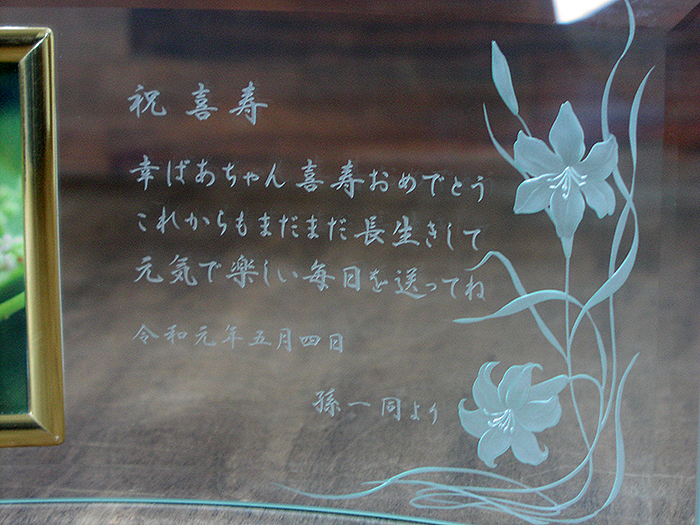 祝 喜 寿
幸ばあちゃん喜寿おめでとう
これからもまだまだ長生きして
元気で楽しい毎日を送ってね
令和元年五月四日
孫一同より